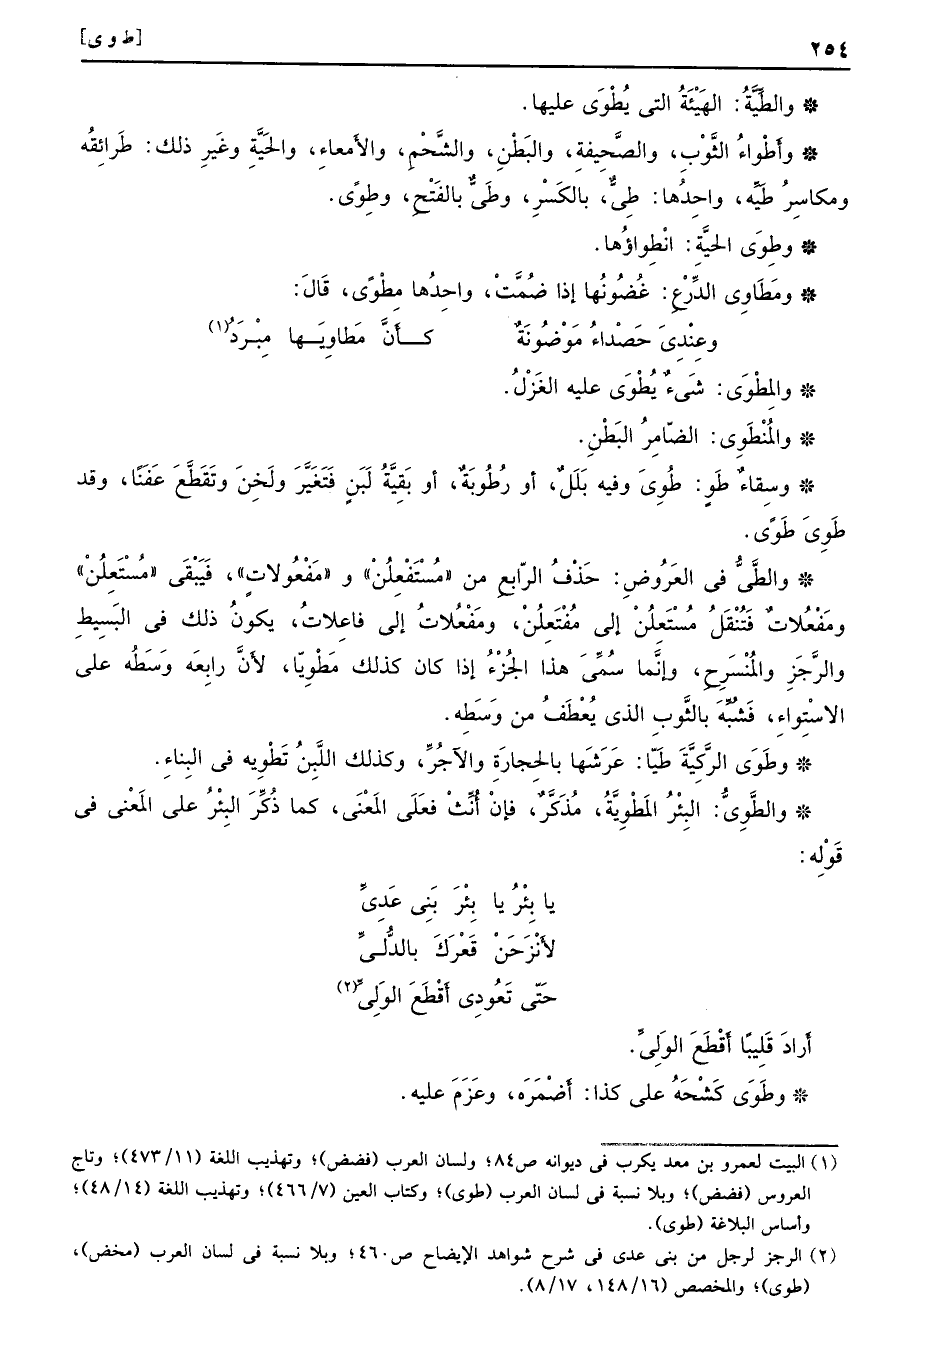 ٢٥٤ [ط و ى]
* والطِّيَّةُ: الهَيْئَةُ التى يُطْوَى عليها.
* وأَطْواءُ الثَّوْبِ، والصَّحِيفةِ، والبَطْنِ، والشَّحْمِ، والأَمعاءِ، والحَيَّةِ وغَيرِ ذلك: طَرائقُه
ومكاسِرُ طَيِّه، واحِدُها: طِىٌّ، بالكَسْرِ، وطَىٌّ بالفَتْحِ، وطِوًى.
* وطِوَى الحيَّةِ: انْطِواؤُها.
* ومَطَاوِى الدِّرْعِ: غُضُونُها إذا ضُمَّتْ، واحِدُها مِطْوًى، قَالَ:
وعِنْدِىَ حَصْداءُ مَوْضُونَةٌ كــأَنَّ مَطاوِيَــها مِبْـرَدُ(١)
* والمِطْوَى: شَىءٌ يُطْوَى عليه الغَزْلُ.
* والمُنْطَوِى: الضّامِرُ البَطْنِ.
* وسِقاءٌ طَوٍ: طُوِىَ وفيه بَلَلٌ، أو رُطُوبَةٌ، أو بَقِيَّةُ لَبَنٍ فَتَغَيَّرَ ولَخِنَ وتَقَطَّعَ عَفَنًا، وقد
طَوِىَ طَوًى.
* والطَّىُّ فى العَرُوضِ: حَذْفُ الرّابِعِ من «مُسْتَفْعِلُنْ» و «مَفْعُولاتِ»، فَيَبْقَى «مُسْتَعِلُنْ»
ومَفْعُلاتٌ فَتُنْقَلُ مُسْتَعِلُنْ إلى مُفْتَعِلُنْ، ومَفْعُلاتُ إلى فاعِلاتُ، يكونُ ذلك فى البَسِيطِ
والرَّجَزِ والمُنْسَرِحِ، وإنَّما سُمِّىَ هذا الجُزْءُ إذا كان كذلك مَطْوِيّا، لأَنَّ رابِعَه وَسَطُه على
الاسْتِواءِ، فَشُبِّهَ بالثَّوبِ الذى يُعْطَفُ من وَسَطِه.
* وطَوَى الرَّكِيَّةَ طَيّا: عَرَشَها بالحِجارَةِ والآجُرِّ، وكذلك اللَّبِنُ تَطْوِيه فى البناءِ.
* والطَّوِىُّ: البِئْرُ المَطْوِيَّةُ، مُذَكَّرٌ، فإنْ أُنِّثْ فعَلَى المَعْنَى، كما ذُكِّرَ البِئْرُ على المَعْنى فى
قَوْلِه:
يا بِئْرُ يا بِئْرَ بَنِى عَدِىِّ
لأَنْزَحَنْ قَعْرَكَ بالدُّلـىِّ
حَتّى تَعُودِى أَقْطَعَ الوَلِىِّ(٢)
أَرادَ قَلِيبًا أَقْطَعَ الوَلِىِّ.
* وطَوَى كَشْحَهُ على كذا: أَضْمَرَه، وعَزَمَ عليه.
(١) البيت لعمرو بن معد يكرب فى ديوانه ص٨٤؛ ولسان العرب (فضض)؛ وتهذيب اللغة (٤٧٣/١١)؛ وتاج
العروس (فضض)؛ وبلا نسبة فى لسان العرب (طوى)؛ وكتاب العين (٤٦٦/٧)؛ وتهذيب اللغة (٤٨/١٤)؛
وأساس البلاغة (طوى).
(٢) الرجز لرجل من بنى عدى فى شرح شواهد الإيضاح ص٤٦٠؛ وبلا نسبة فى لسان العرب (مخض)،
(طوى)؛ والمخصص (١٤٨/١٦، ٨/١٧).